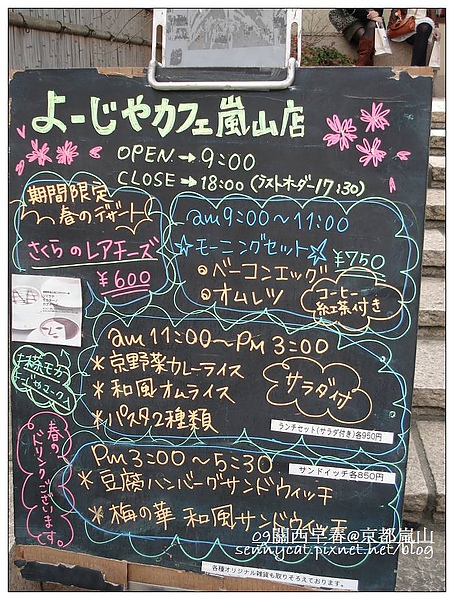 よーじやカフェ嵐山店
OPEN→9:00
CLOSE→18:00(ラストオーダー17:30)
期間限定
春のデザート
さくらのレアチーズ
¥600
am9:00〜11:00
☆モーニングセット☆
¥750
◎ベーコンエッグ
◎オムレツ
コーヒー
紅茶付き
am 11:00〜Pm 3:00
*京野菜カレーライス
*和風オムライス
*パスタ2種類
サラダ付
ランチセット(サラダ付き)各950円
抹茶モカ
春の
ドリンクございます。
Pm3:00〜5:30
サンドイッチ 各850円
*豆腐ハンバーグサンドウィッチ
*梅の華 和風サンドウィッチ
09關西早春@京都嵐山
sennycat.pixnet.net/blog
各種オリジナル雑貨も取りそろえております。